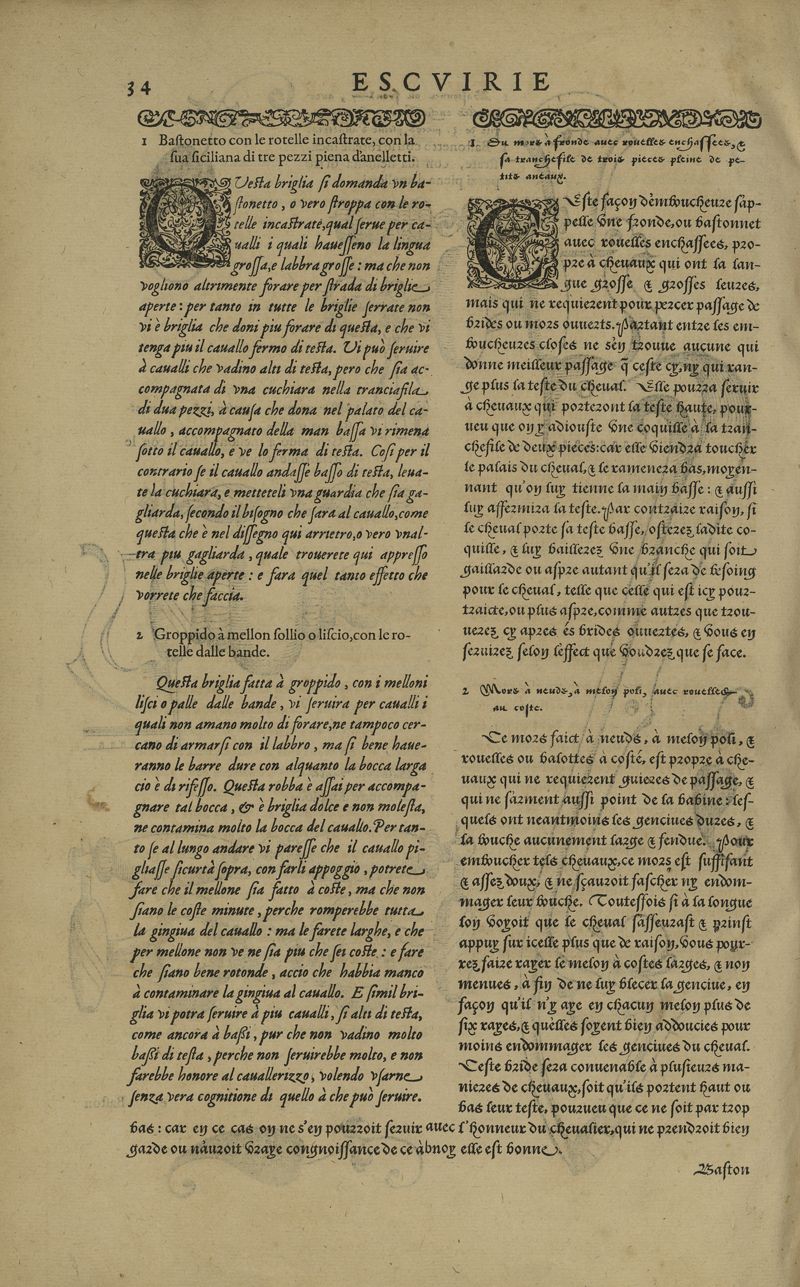 34
ESCVIRIE
1 Bastonetto con le rotelle incastrate, con la
sua siciliana di tre pezzi piena d'anelletti.
QVesta briglia si domanda vn ba-
stonetto, o vero stroppa con le ro-
telle incastrate,qual serue per ca-
ualli i quali hauesseno la lingua
grossa,e labbra grosse : ma che non
vogliono altrimente forare per strada di briglie
aperte : per tanto in tutte le briglie serrate non
vi è briglia che doni piu forare di questa, e che vi
tenga piu il cauallo fermo di testa. Vi può seruire
à caualli che vadino alti di testa, pero che sia ac-
compagnata di vna cuchiara nella tranciafila
di dua pezzi, à causa che dona nel palato del ca-
uallo , accompagnato della man bassa vi rimena
sotto il cauallo, e ve lo ferma di testa. Cosi per il
contrario se il cauallo andasse basso di testa, leua-
te la cuchiara, e metteteli vna guardia che sia ga-
gliarda, secondo il bisogno che sara al cauallo,come
questa che è nel dissegno qui arrietro,o vero vnal-
tra piu gagliarda , quale trouerete qui appresso
nelle briglie aperte : e fara quel tanto effetto che
vorrete che faccia.
2 Groppido à mellon sollio o liscio,con le ro-
telle dalle bande.
Questa briglia fatta à groppido , con i melloni
lisci o palle dalle bande , vi seruira per caualli i
quali non amano molto di forare,ne tampoco cer-
cano di armarsi con il labbro , ma si bene haue-
ranno le barre dure con alquanto la bocca larga
cio è di risesso. Questa robba è assai per accompa-
gnare tal bocca , & è briglia dolce e non molesta,
ne contamina molto la bocca del cauallo. Per tan-
to se al lungo andare vi paresse che il cauallo pi-
gliasse sicurtà sopra, con farli appoggio , potrete
fare che il mellone sia fatto à coste , ma che non
siano le coste minute , perche romperebbe tutta
la gingiua del cauallo : ma le farete larghe, e che
per mellone non ve ne sia piu che sei coste : e fare
che siano bene rotonde , accio che habbia manco
à contaminare la gingiua al cauallo. E simil bri-
glia vi potra seruire à piu caualli, si alti di testa,
come ancora à bassi , pur che non vadino molto
bassi di testa , perche non seruirebbe molto, e non
farebbe honore al cauallerizzo, volendo vsarne
senza vera cognitione di quello à che può seruire.
1. Du mors à fronde auec rouelles enchassees, &
sa tranchefile de trois pieces pleine de pe-
tits aneaux.
CEste façon d'emboucheure s'ap-
pelle vne fronde, ou bastonnet
auec rouelles enchassees, pro-
pre à cheuaux qui ont la lan-
gue grosse & grosses leures,
mais qui ne requierent pour percer passage de
brides ou mors ouuerts. Partant entre les em-
boucheures closes ne s'en trouue aucune qui
donne meilleur passage q̃ ceste cy, ny qui ran-
ge plus la teste du cheual. Elle pourra seruir
à cheuaux qui porteront la teste haute, pour-
ueu que on y adiouste vne coquille à la tran-
chefile de deux pieces:car elle viendra toucher
le palais du cheual,& le ramenera bas,moyen-
nant qu'on luy tienne la main basse : & aussi
luy affermira la teste. Par contraire raison, si
le cheual porte sa teste basse, osterez ladite co-
quille, & luy baillerez vne branche qui soit
gaillarde ou aspre autant qu'il sera de besoing
pour le cheual, telle que celle qui est icy pour-
traicte,ou plus aspre,comme autres que trou-
uerez cy apres és brides ouuertes, & vous en
seruirez selon l'effect que voudrez que se face.
2 Mors à neuds, à melon poli, auec rouelles
au coste.
Ce mors faict à neuds, à melon poli, &
rouelles ou balottes à costé, est propre à che-
uaux qui ne requierent guieres de passage, &
qui ne s'arment aussi point de la babine : les-
quels ont neantmoins les genciues dures, &
la bouche aucunement large & fendue. Pour
emboucher tels cheuaux,ce mors est suffisant
& assez doux, & ne sçauroit fascher ny endom-
mager leur bouche. Toutesfois si à la longue
lon voyoit que le cheual s'asseurast & prinst
appuy sur icelle plus que de raison, vous pour-
rez faire rayer le melon à costes larges, & non
menues, à fin de ne luy blecer la genciue, en
façon qu'il n'y aye en chacun melon plus de
six rayes, & qu'elles soyent bien addoucies pour
moins endommager les genciues du cheual.
Ceste bride sera conuenable à plusieurs ma-
nieres de cheuaux,soit qu'ils portent haut ou
bas leur teste, pourueu que ce ne soit par trop
bas : car en ce cas on ne s'en pourroit seruir auec l'honneur du cheualier,qui ne prendroit bien
garde ou n'auroit vraye congnoissance de ce àbnoy elle est bonne.
Baston